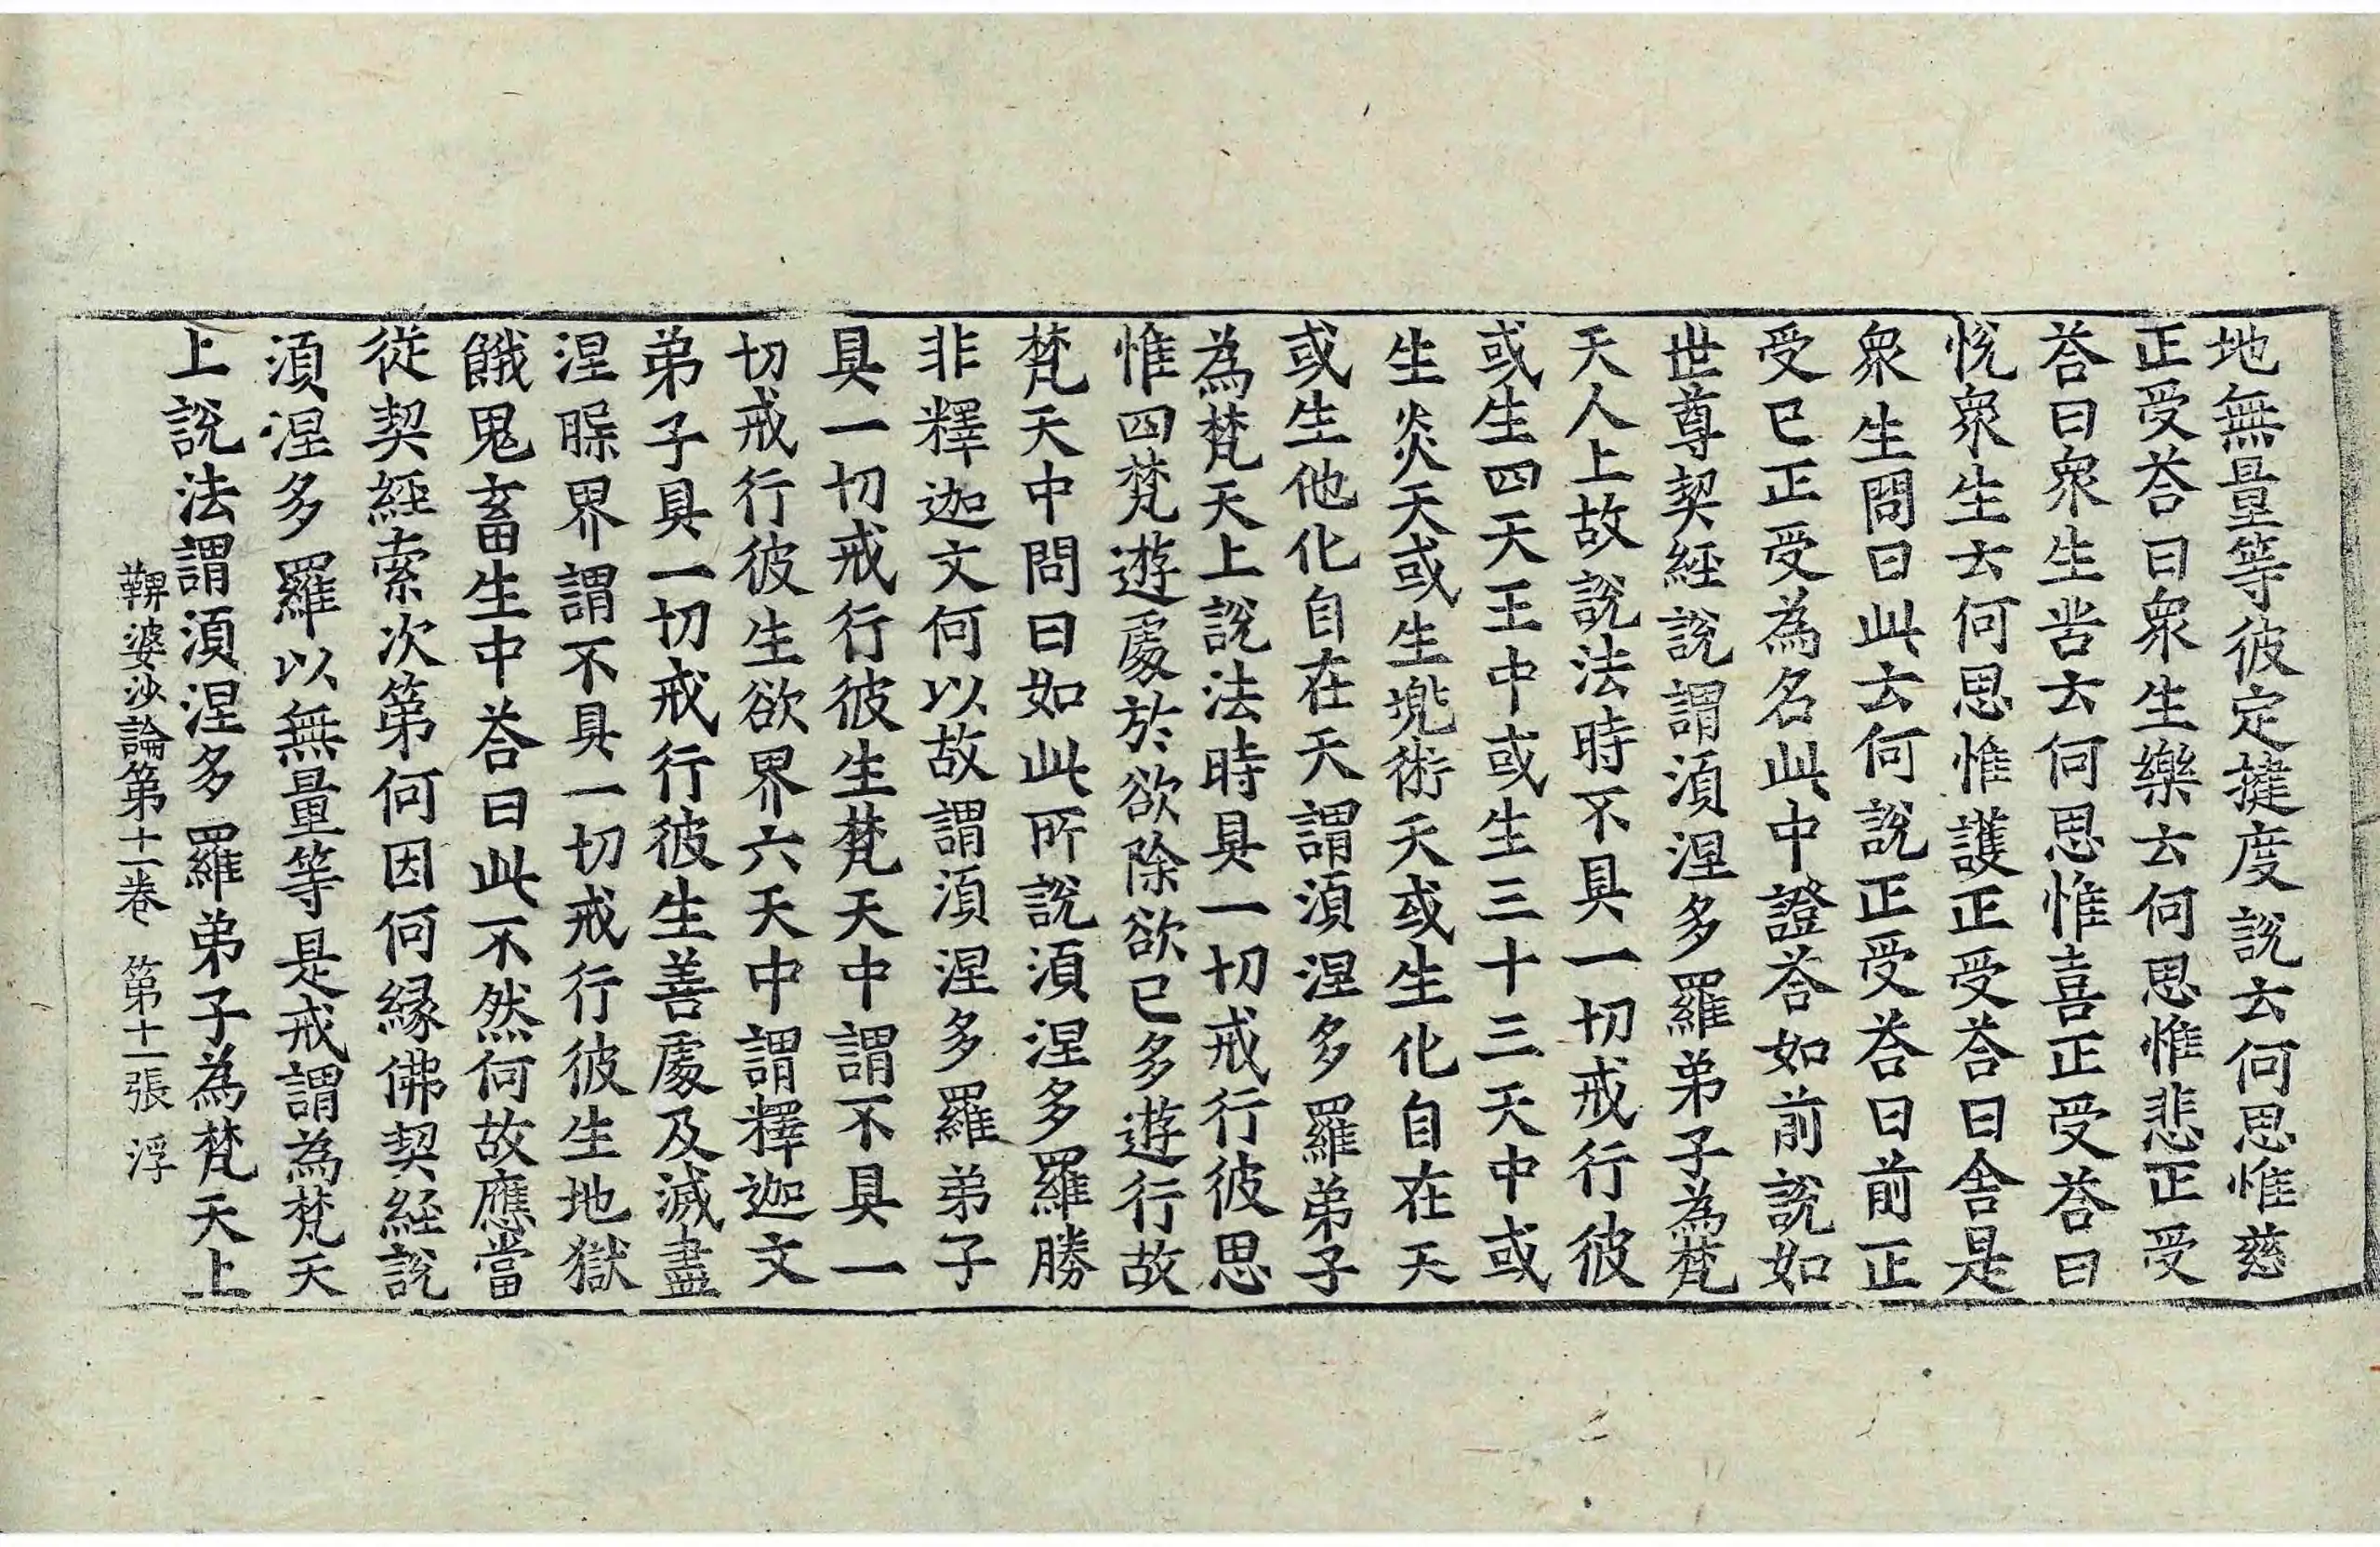 地無量等彼定揵度說云何思惟慈
正受荅曰衆生樂云何思惟悲正受
荅曰衆生苦云何思惟喜正受荅曰
悅衆生云何思惟護正受荅曰舍是
衆生問曰此云何說正受荅曰前正
受已正受為名此中證荅如前說如
世尊契經說謂湏涅多羅弟子為梵
天人上故說法時不具一切戒行彼
或生四天王中或生三十三天中或
生炎天或生兠術天或生化自在天
或生他化自在天謂湏涅多羅弟子
為梵天上說法時具一切戒行彼思
惟四梵遊處於欲除欲已多遊行故
梵天中問曰如此所說湏涅多羅勝
非釋迦文何以故謂湏涅多羅弟子
具一切戒行彼生梵天中謂不具一
切戒行彼生欲界六天中謂釋迦文
弟子具一切戒行彼生善處及滅盡
涅槃界謂不具一切戒行彼生地獄
餓鬼畜生中荅曰此不然何故應當
從契經索次第何因何緣佛契經說
湏涅多羅以無量等是戒謂為梵天
上說法謂湏涅多羅弟子為梵天上
鞞婆沙論第十一卷 第十一張 浮